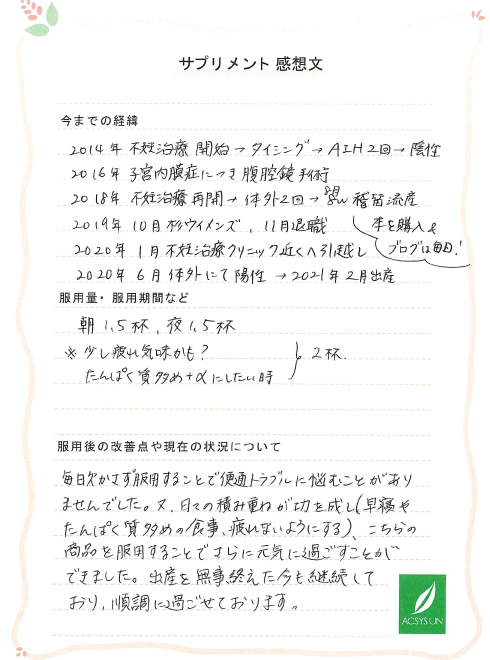 サプリメント 感想文
今までの経緯
2014年 不妊治療 開始→タイミング→AIH2回→陰性
2016年 子宮内膜症につき腹腔鏡手術
2018年 不妊治療再開→体外2回→ 稽留流産
2019年 10月 杉ウイメンズ、11月退職
本を購入&
ブログは毎日!
2020年 1月 不妊治療クリニック近くへ引越し
2020年 6月 体外にて陽性 →2021年2月出産
服用量・服用期間など
朝 1.5杯、夜 1.5杯
※ 少し疲れ気味かも?
たんぱく質多め+αにしたい時
2杯.
服用後の改善点や現在の状況について
毎日欠かさず服用することで便通トラブルに悩むことがあり
ませんでした。又、日々の積み重ねが功を成し(早寝や
たんぱく質多めの食事、疲れないようにする)、こちらの
商品を服用することでさらに元気に過ごすことが
できました。出産を無事終えた今も継続して
おり、順調に過ごせております。
ACSYSUN